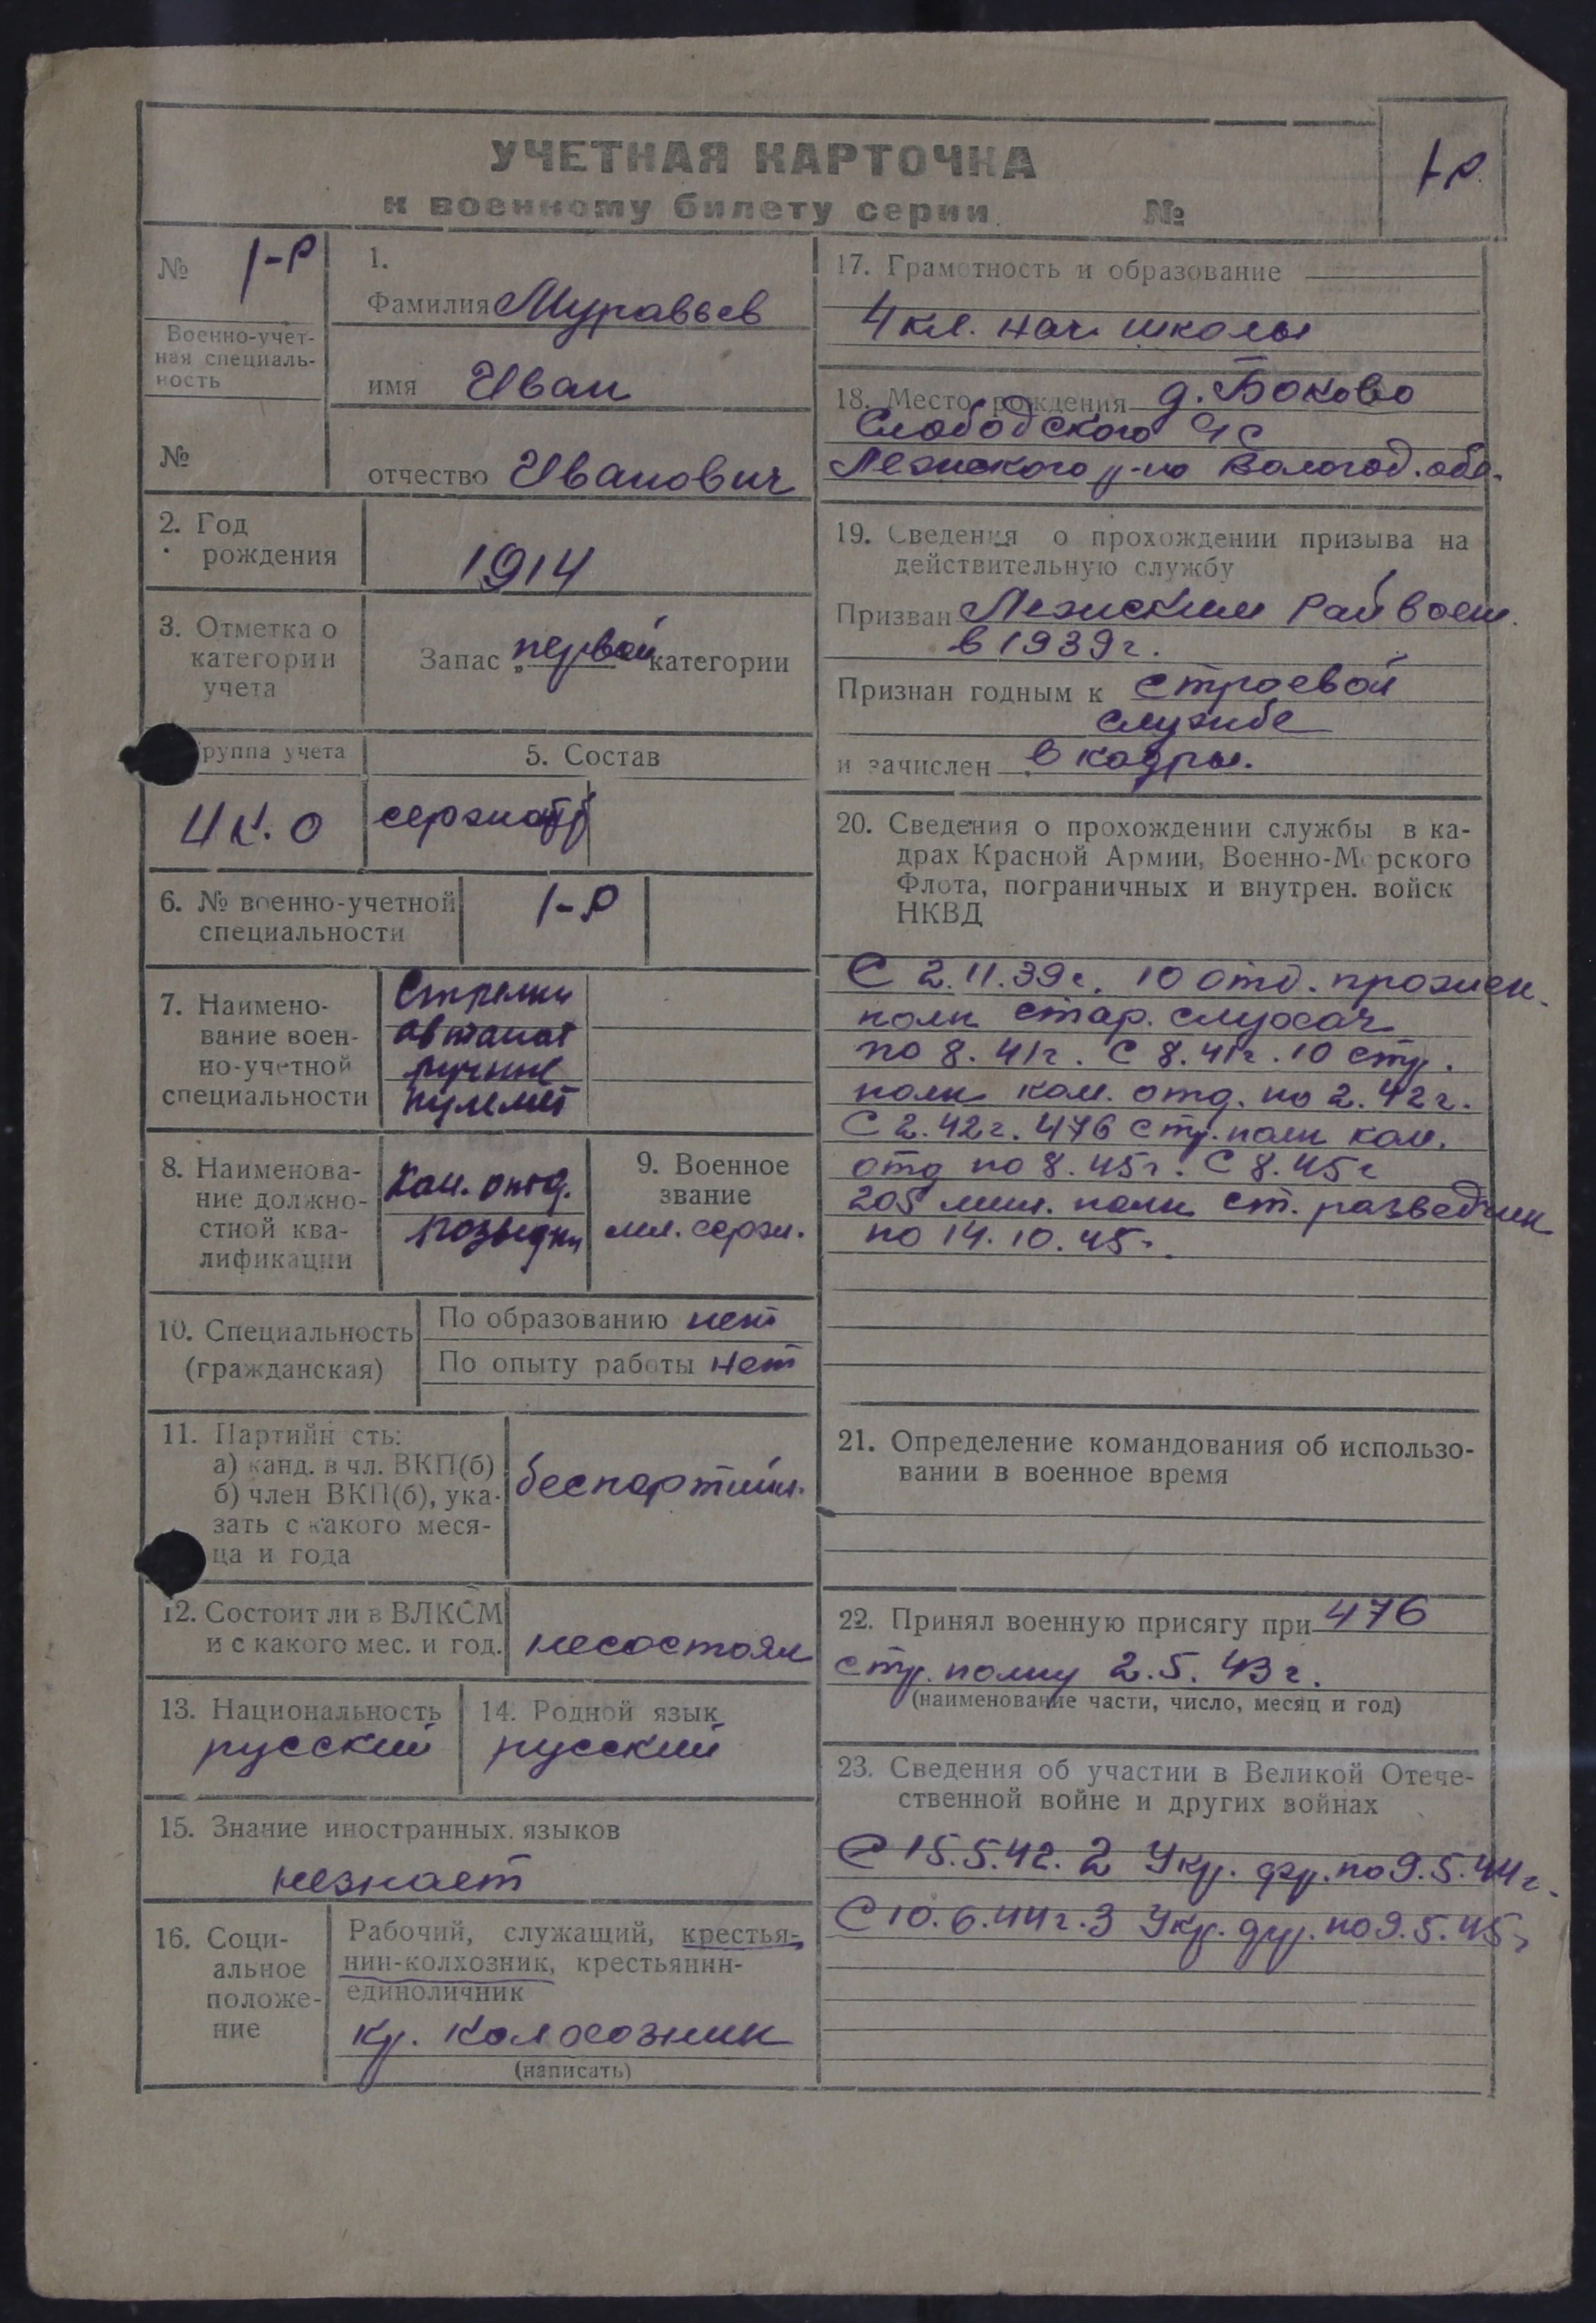 УЧЕТНАЯ КАРТОЧКА
к военному билету серии №
1-Р
№ 1-Р
Военно-учет-
ная специаль-
ность
№
1.
Фамилия Муравьев
имя Иван
отчество Иванович
2. Год
рождения
1914
3. Отметка о
категории
учета
Запас первой категории
руппа учета
5. Состав
сержант
6. № военно-учетной
специальности
1-Р
7. Наимено-
вание воен-
но-учетной
специальности
Стрелки
автомат
ручные
пулемет
8. Наименова-
ние должно-
стной ква-
лификации
Ком. отд.
9. Военное
звание
мл. серж.
10. Специальность
(гражданская)
По образованию нет
По опыту работы нет
11. Партийн сть:
а) канд. в чл. ВКП(б)
б) член ВКП(б), ука-
зать с какого меся-
ца и года
беспартийн.
12. Состоит ли в ВЛКСМ
и с какого мес. и год.
несостоял
13. Национальность
русский
14. Родной язык
русский
15. Знание иностранных языков
незнает
16. Соци-
альное
положе-
ние
Рабочий, служащий, крестья-
нин-колхозник, крестьянин-
единоличник
кр. колхозник
(написать)
17. Грамотность и образование
4 кл. нач школы
18. Место рождения д. Боково
Слободского с/с
Лежского р-на Вологод. обл.
19. Сведения о прохождении призыва на
действительную службу
Призван Лежским Райвоен.
в 1939 г.
Признан годным к строевой
службе
и зачислен в кадры.
20. Сведения о прохождении службы в ка-
драх Красной Армии, Военно-М рского
Флота, пограничных и внутрен. войск
НКВД
С 2.11.39г. 10 отд. прожек.
полк стар. слухач
по 8.41г. С 8.41г. 10 стр.
полк ком. отд. по 2.42г.
С 2.42г. 476 стр. полк ком.
отд по 8.45г. С 8.45г
205 мин. полк ст. разведчик
по 14.10.45г.
21. Определение командования об использо-
вании в военное время
22. Принял военную присягу при 476
стр. полку 2.5.43г.
(наименование части, число, месяц и год)
23. Сведения об участии в Великой Отече-
ственной войне и других войнах
С 15.5.42. 2 Укр. фр. по 9.5.44г.
С 10.6.44г. 3 Укр. фр. по 9.5.45г